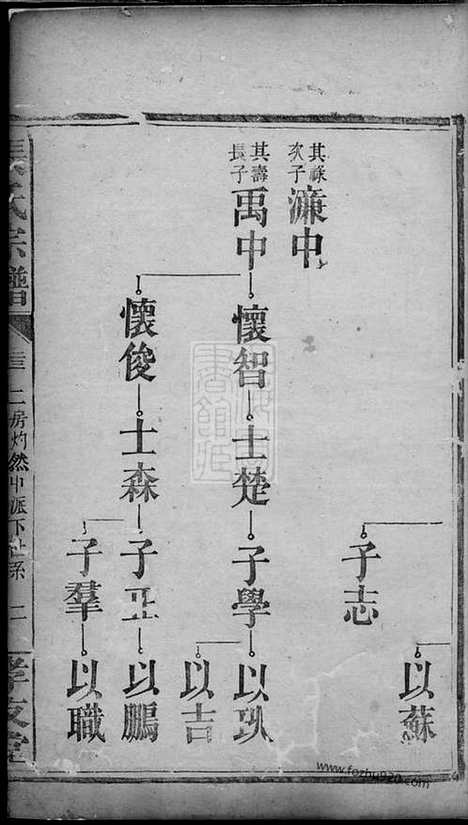 以蘇
子志
其祿次子
濂中
其壽長子
禹中 懷智 士楚 子學 以珎
以吉
懷俊 士森 子正 以鵬
子羣 以職
氏宗譜
二房灼然中派下世系
二
孝友堂
www.fozhu920.com